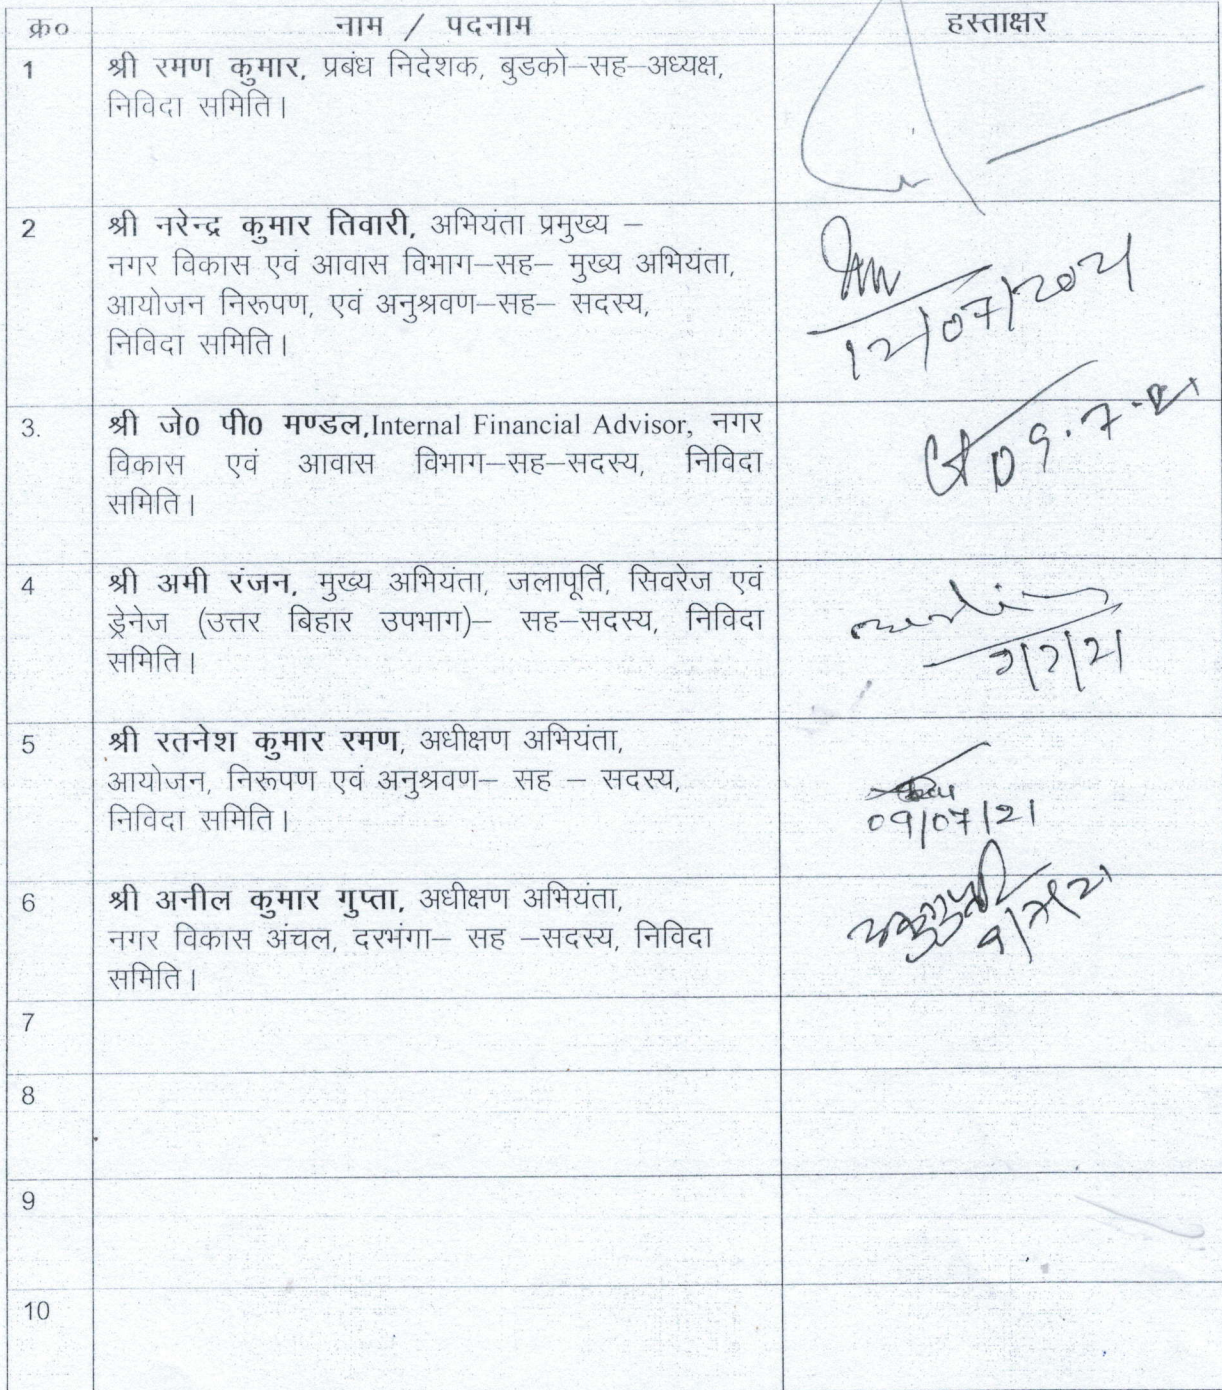 क्र० नाम / पदनाम हस्ताक्षर
1 श्री रमण कुमार, प्रबंध निदेशक, बुडको–सह–अध्यक्ष,
निविदा समिति।
2 श्री नरेन्द्र कुमार तिवारी, अभियंता प्रमुख्य –
नगर विकास एवं आवास विभाग–सह– मुख्य अभियंता,
आयोजन निरूपण, एवं अनुश्रवण–सह– सदस्य,
निविदा समिति।
12/07/2021
3. श्री जे0 पी0 मण्डल,Internal Financial Advisor, नगर
विकास एवं आवास विभाग–सह–सदस्य, निविदा
समिति।
09.7.21
4 श्री अमी रंजन, मुख्य अभियंता, जलापूर्ति, सिवरेज एवं
ड्रेनेज (उत्तर बिहार उपभाग)– सह–सदस्य, निविदा
समिति।
5 श्री रतनेश कुमार रमण, अधीक्षण अभियंता,
आयोजन, निरूपण एवं अनुश्रवण– सह – सदस्य,
निविदा समिति।
09/07/21
6 श्री अनील कुमार गुप्ता, अधीक्षण अभियंता,
नगर विकास अंचल, दरभंगा– सह –सदस्य, निविदा
समिति।
7
8
9
10